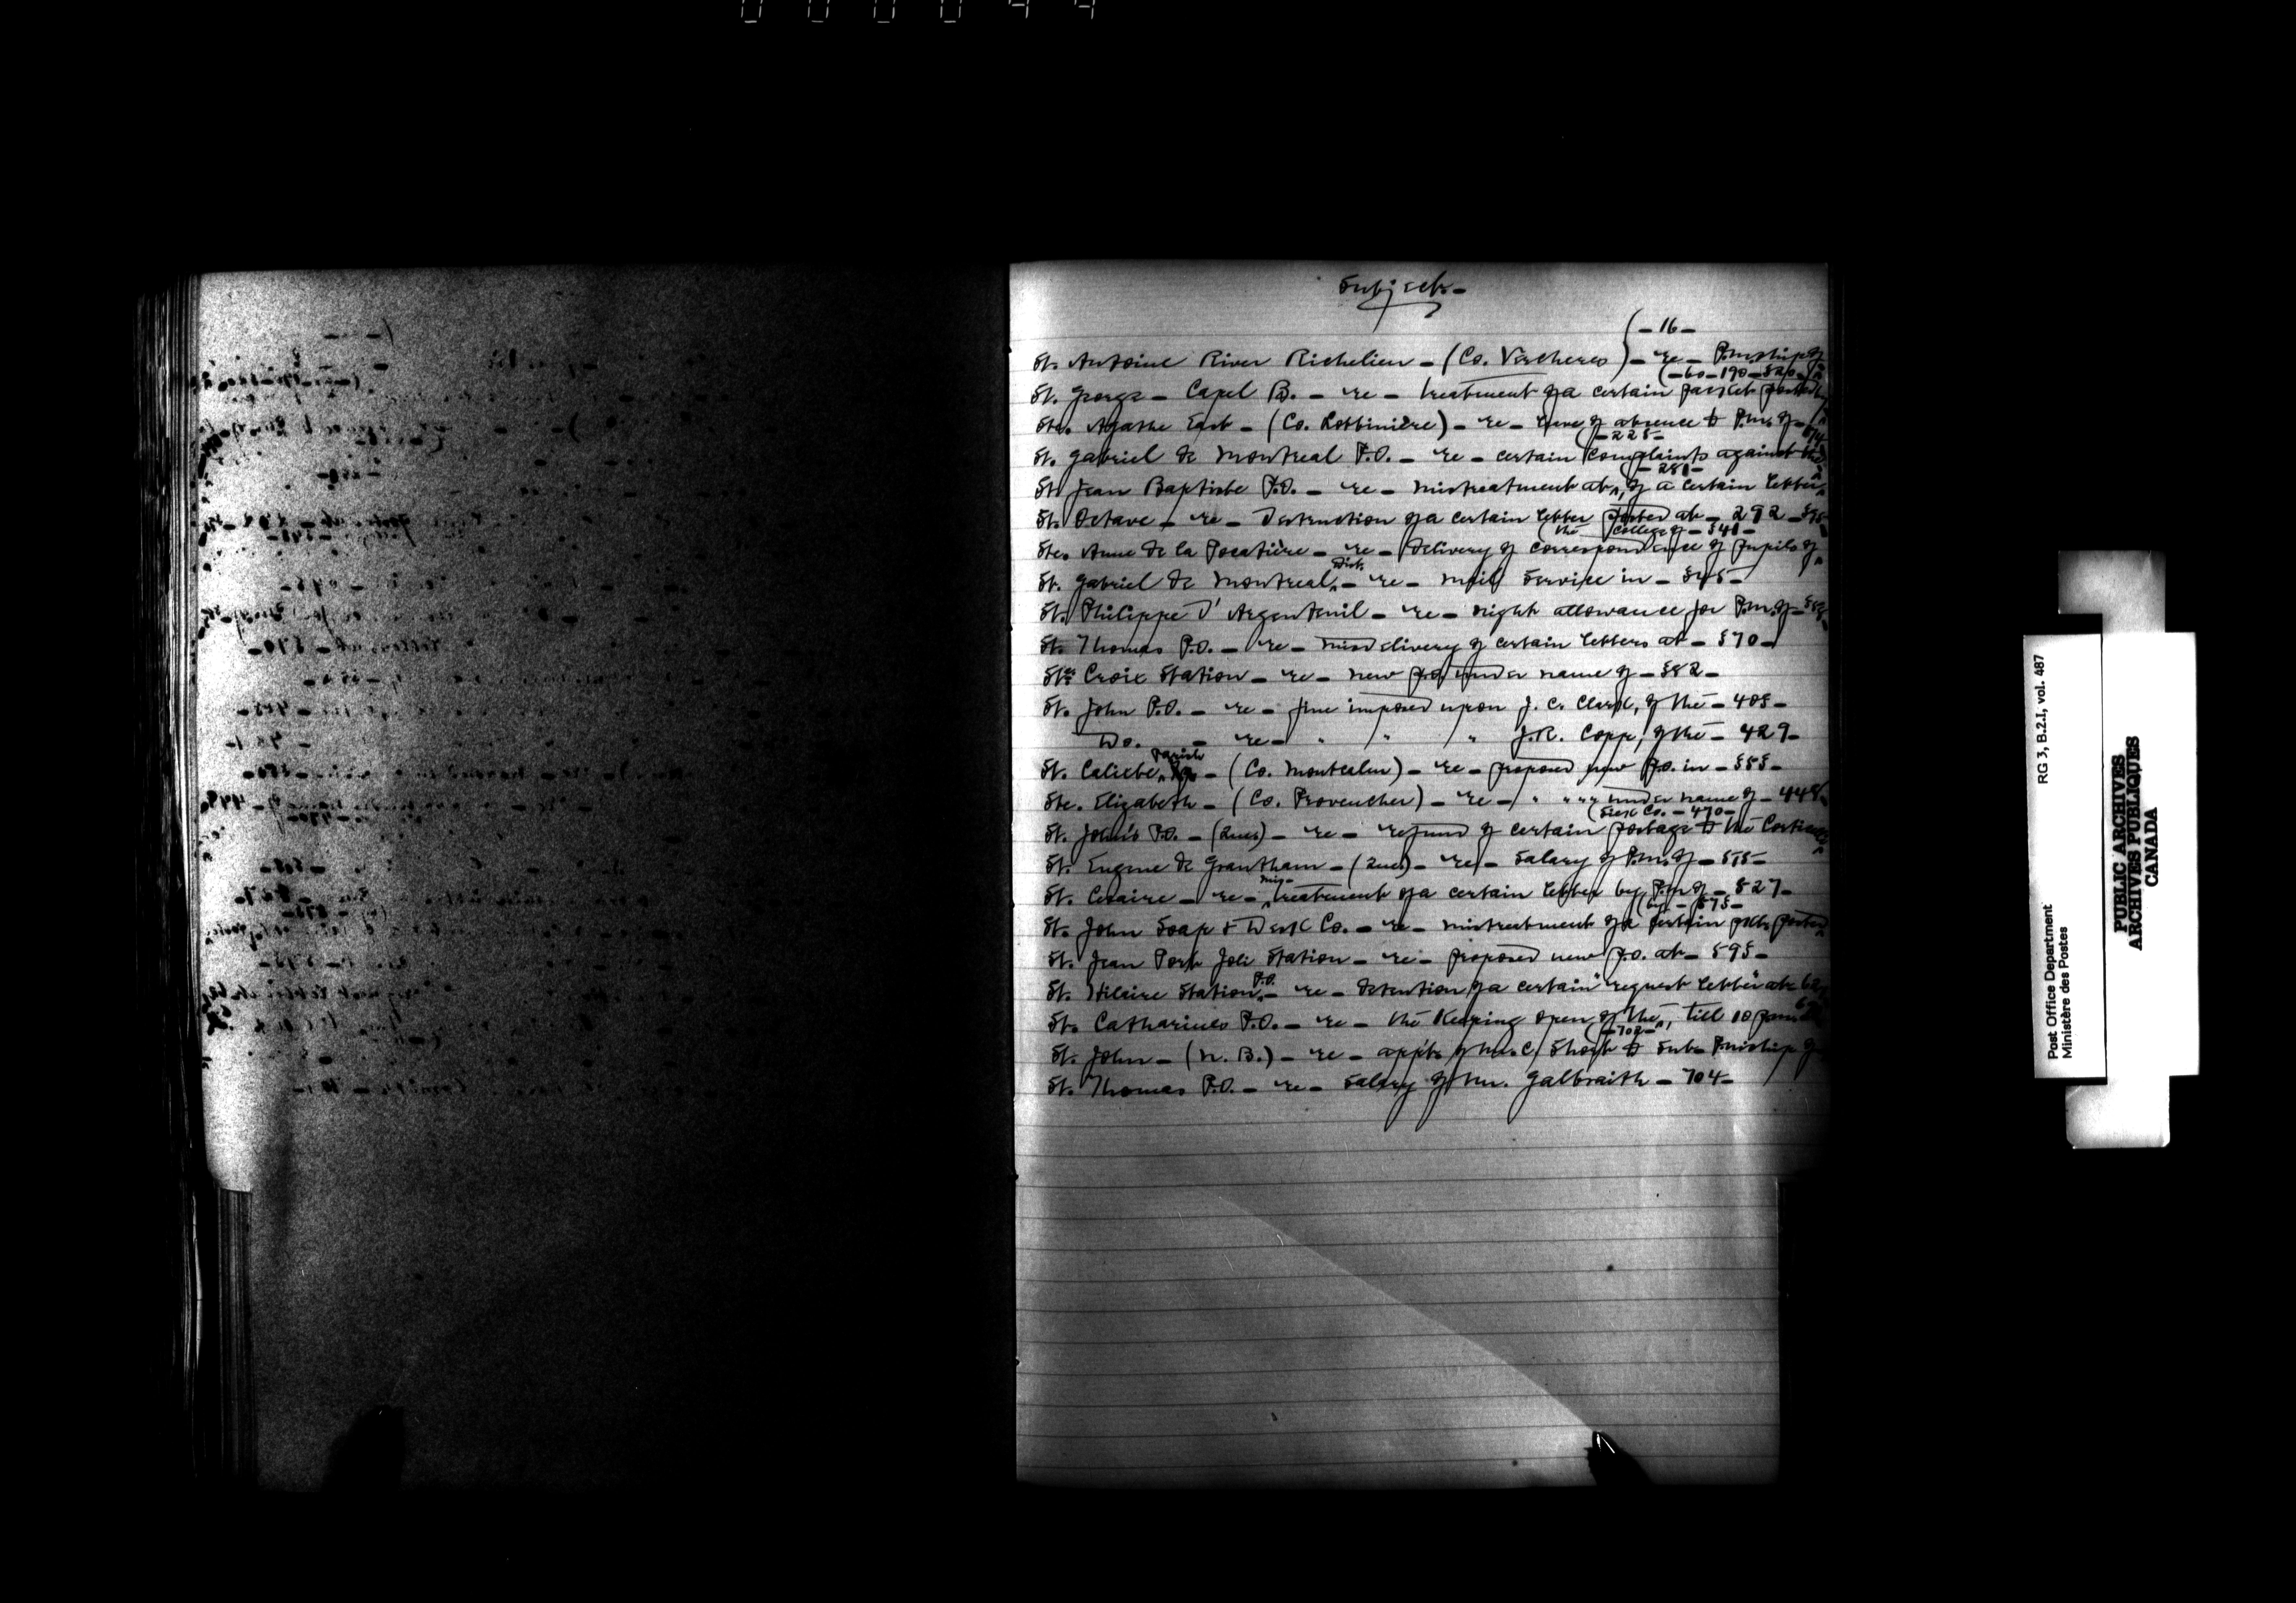 000044
Subjects-
(-16-
St. Antoine River Richelieu - (Co. Verchères) - re - P.m.ship of
(-60-190-520-
St. George - Capel B. - re - treatment of a certain packet posted
Ste. Agathe East - (Co. Lotbinière) - re - leave of absence to P.m. of -
(-225-
St. Gabriel de Montreal P.O. - re - certain complaints against the
(-281-
St. Jean Baptiste P.O. - re - mistreatment at, of a certain letter
St. Octave - re - Destruction of a certain letter posted at - 292 -
(the College of - 341 -
Ste. Anne de la Pocatière - re - delivery of correspondence of pupils of
Dist.
St. Gabriel de Montreal - re - mail service in - 345 -
St. Philippe D'Argenteuil - re - night allowance for P.m. of -
St. Thomas P.O. - re - misdelivery of certain letters at - 370 -
Ste. Croix Station - re - new P.O. under name of - 382 -
St. John P.O. - re - fine imposed upon J. C. Clark, of the - 405 -
Do. - re - " " " J.R. Copp, of the - 429 -
Parish
St. Calixte - (Co. Montcalm) - re - proposed new P.O. in - 555 -
Ste. Elizabeth - (Co. Provencher) - re - " " " " under name of - 448
(Silk Co. - 470 -
St. John's P.O. - (Que) - re - refund of certain postage to the Corticelli
St. Eugene de Grantham - (Que) - re - Salary of P.m. of - 515 -
mis-
St. Cesaire - re - treatment of a certain letter by P.m. of - 527 -
(by - 575 -
St. John Soap & Desk Co. - re - mistreatment of a certain posted
St. Jean Port Joli Station - re - proposed new P.O. at - 595 -
P.O.
St. Hilaire Station - re - detention of a certain "request letter" at -
St. Catharines P.O. - re - the keeping open of the, till 10 p.m.
(-702-
St. John - (N. B.) - re - appt. of Mr. C. Short to Sub. P.m.ship of
St. Thomas P.O. - re - Salary of Mr. Galbraith - 704 -
RG 3, B.2.I, vol. 487
Post Office Department
Ministère des Postes
PUBLIC ARCHIVES
ARCHIVES PUBLIQUES
CANADA